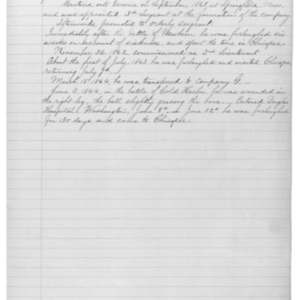 Mustered into service in September 1861 at Springfield Mass.
and appointed 3d Sergeant at the formation of the company
Afterwards promoted to orderly sergeant.
Immediately after the battle of Newbern he was furloughed six
weeks on account of sickness, and spent the time in Chicopee.
November 1862 commissioned as 2d Lieutenant
About the first of July, 1863 he was furloughed and visited Chicopee
returning July
March 15" 1864 he was transferred to Company G.
June 3, 1864, in the battle of Cold Harbor he was wounded in
the right leg, the ball slightly grazing the bone. Entered Douglas
Hospital, Washington, June 8th. On June 12th he was furloughed
for 30 days and came to Chicopee.